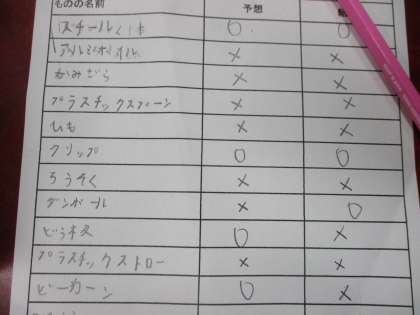 ものの名前 予想
スチールくぎ ○ ○
アルミホイル × ×
かみざら × ×
プラスチックスプーン × ×
ひも × ×
クリップ ○ ○
ろうそく × ×
ダンボール × ○
どう板 ○ ×
プラスチックストロー × ×
ビーカーン ○ ×